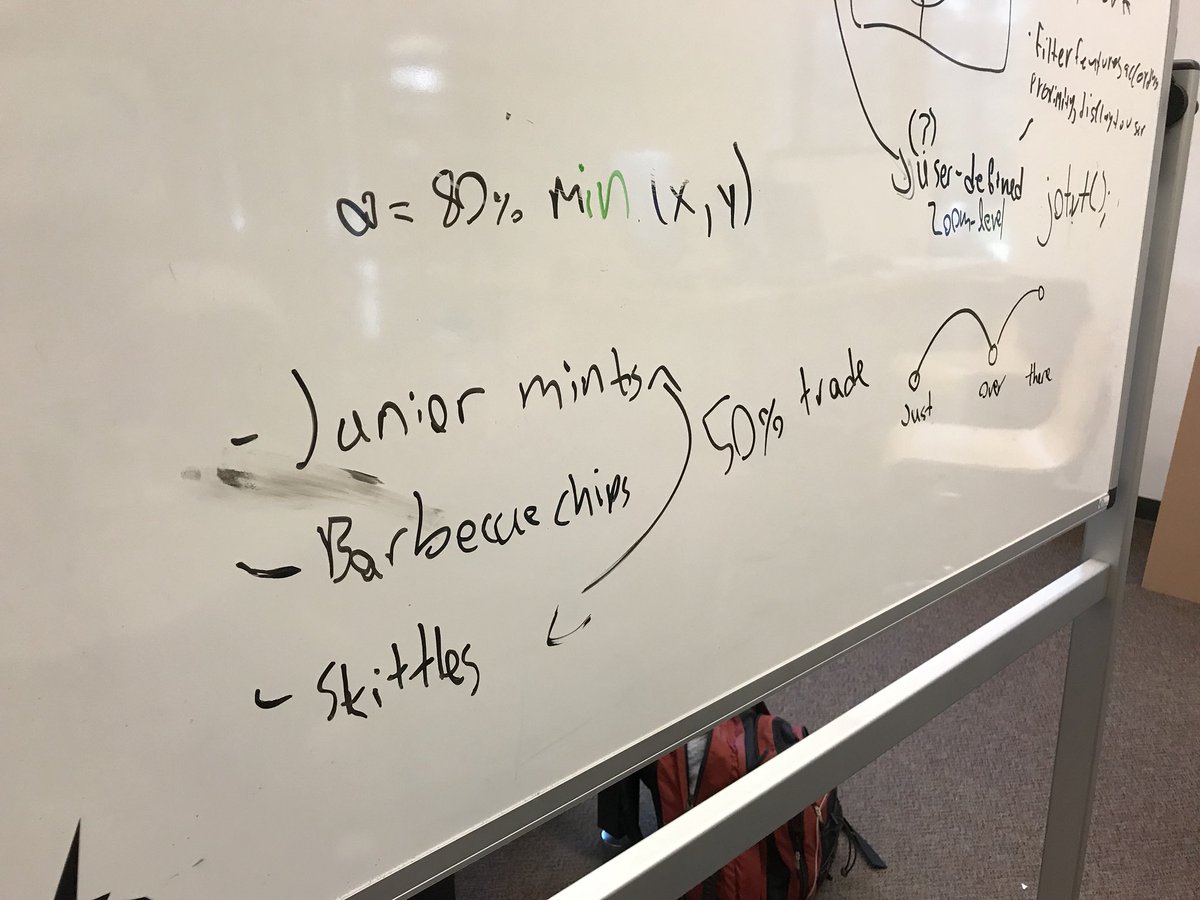 · Filter features according
proximity, display to user
(?)
user-defined
zoom-level
jotvt();
∞ = 80% min (x, y)
- Junior mints
50% trade
Just over there
- Barbecue chips
- Skittles